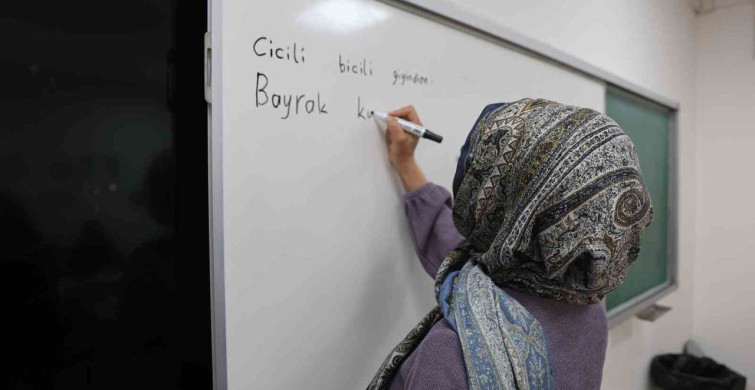 Cicili bicili giyindim.
Bayrak ku